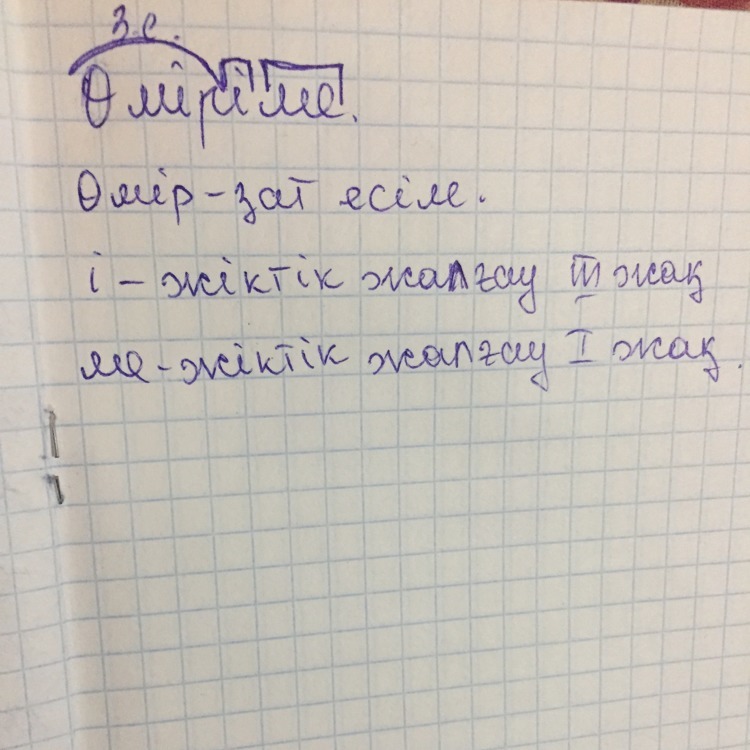 з.е.
Өміріме.
Өмір - зат есім.
і - жіктік жалғау III жақ
ме - жіктік жалғау I жақ.